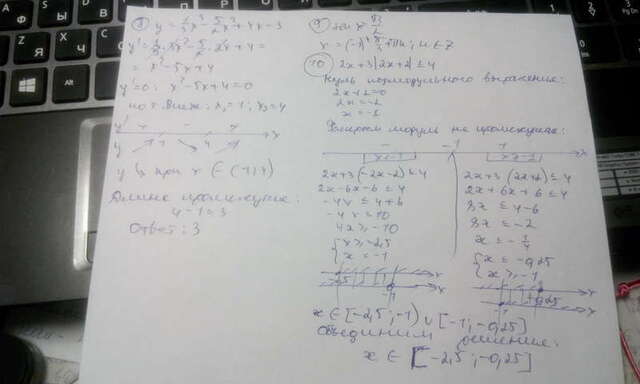 ⑧ y = 1/3x³ - 5/2x² + 4x - 3
y' = 1/3·3x² - 5/2·2x + 4 =
= x² - 5x + 4
y' = 0; x² - 5x + 4 = 0
по т. Виета: x₁ = 1; x₂ = 4
y при x ∈ (1; 4)
Длина промежутка:
4 - 1 = 3
Ответ: 3
⑨ sin x
⑩ 2x + 3|2x + 2| ≤ 4
Нуль подмодульного выражения:
2x + 2 = 0
2x = -2
x = -1
Раскроем модуль на промежутках:
- -1 + x
2x + 3(-2x - 2) ≤ 4
2x - 6x - 6 ≤ 4
-4x ≤ 4 + 6
-4x ≤ 10
4x ≥ -10
{ x ≥ -2,5
2x + 3(2x + 2) ≤ 4
2x + 6x + 6 ≤ 4
8x ≤ 4 - 6
8x ≤ -2
x ≤ -1/4
{ x ≤ -0,25
x ≥ -1
x ∈ [-2,5; -1) ∪ [-1; -0,25]
Объединим решение:
x ∈ [-2,5; -0,25]